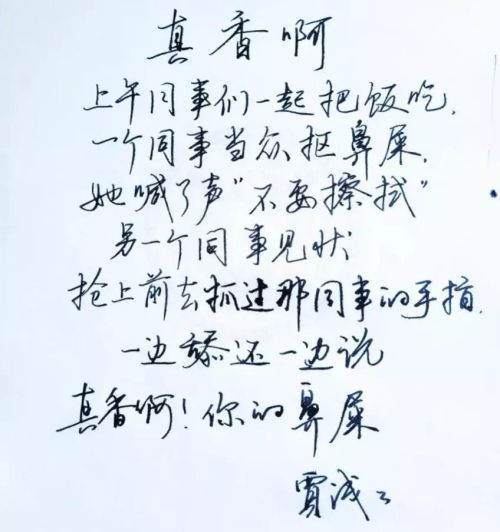 真香啊
上午同事们一起把饭吃.
一个同事当众抠鼻屎.
她喊了声"不要擦拭"
另一个同事见状
抢上前去抓过那同事的手指.
一边舔还一边说
真香啊!你的鼻屎
贾浅浅